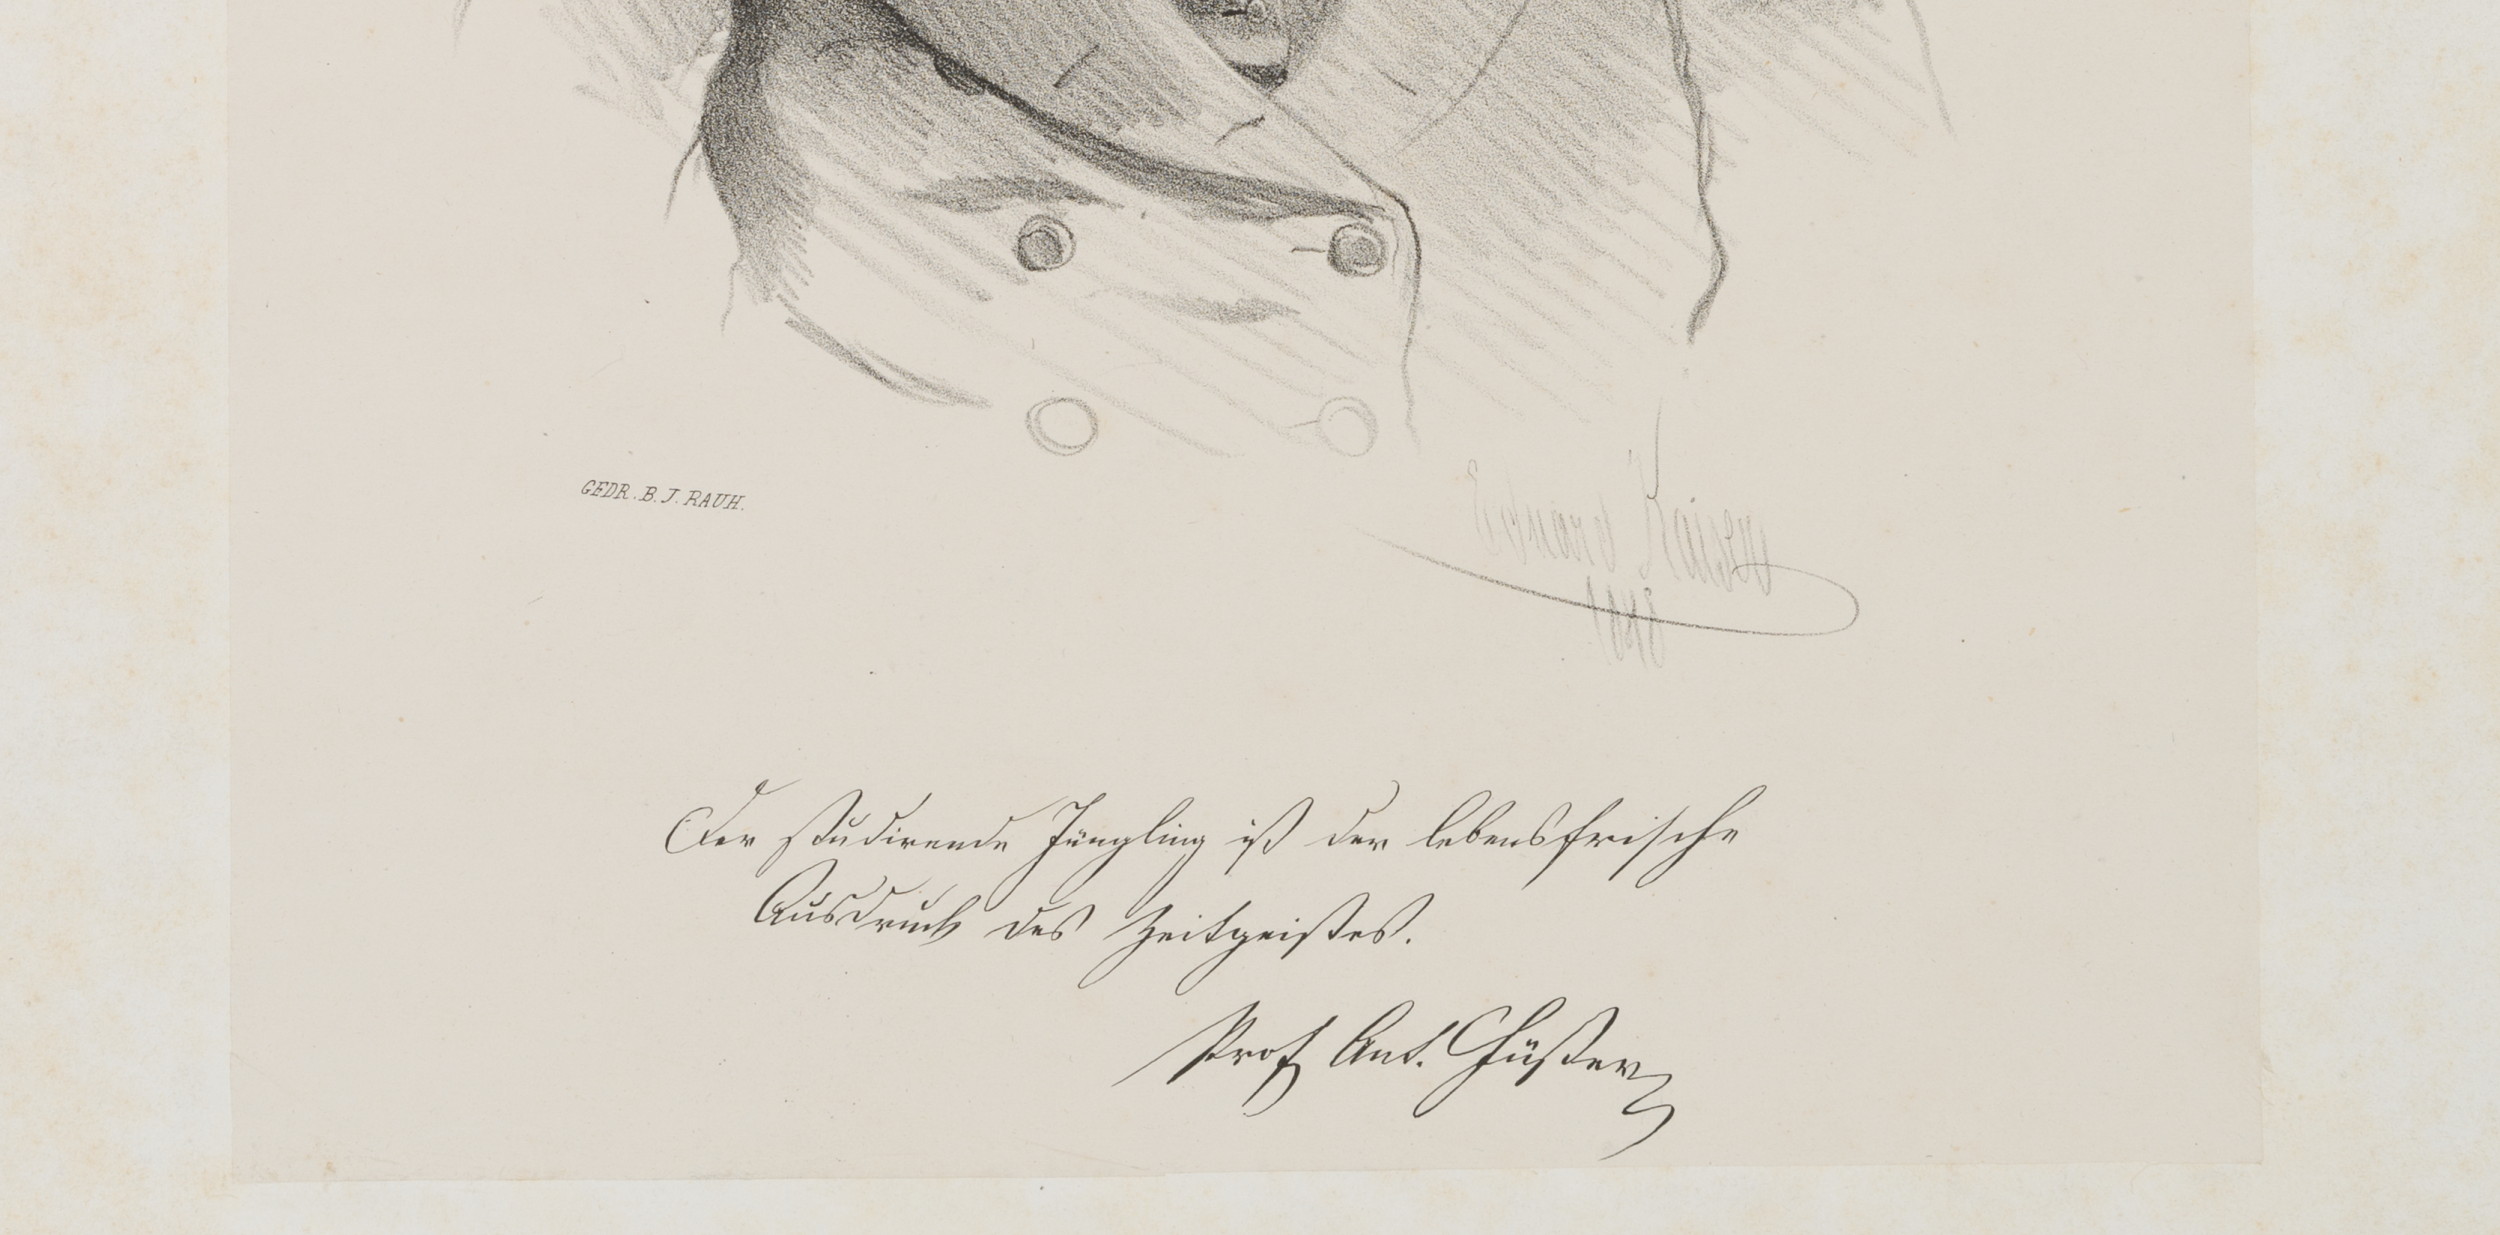 GEDR. B. J. RAUH.
Eduard Kaiser
1848
Der studirende Jüngling ist der lebensfrische
Ausdruck des Zeitgeistes.
Prof Ant. Füster